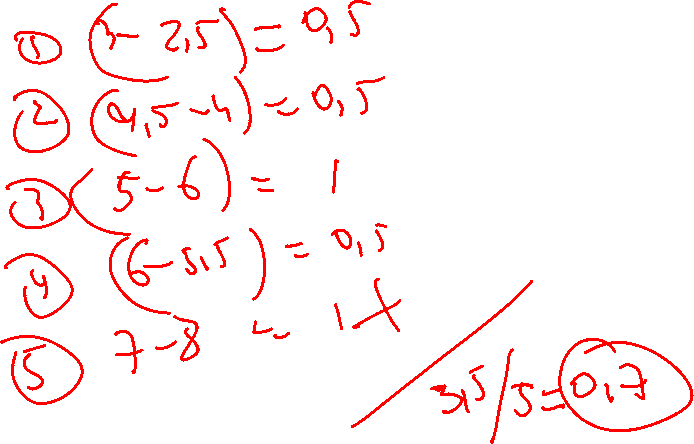 ① (3-2,5)=0,5
② (4,5-4)=0,5
③ (5-6)= 1
④ (6-5,5)=0,5
⑤ 7-8 = 1 +
3,5/5=0,7